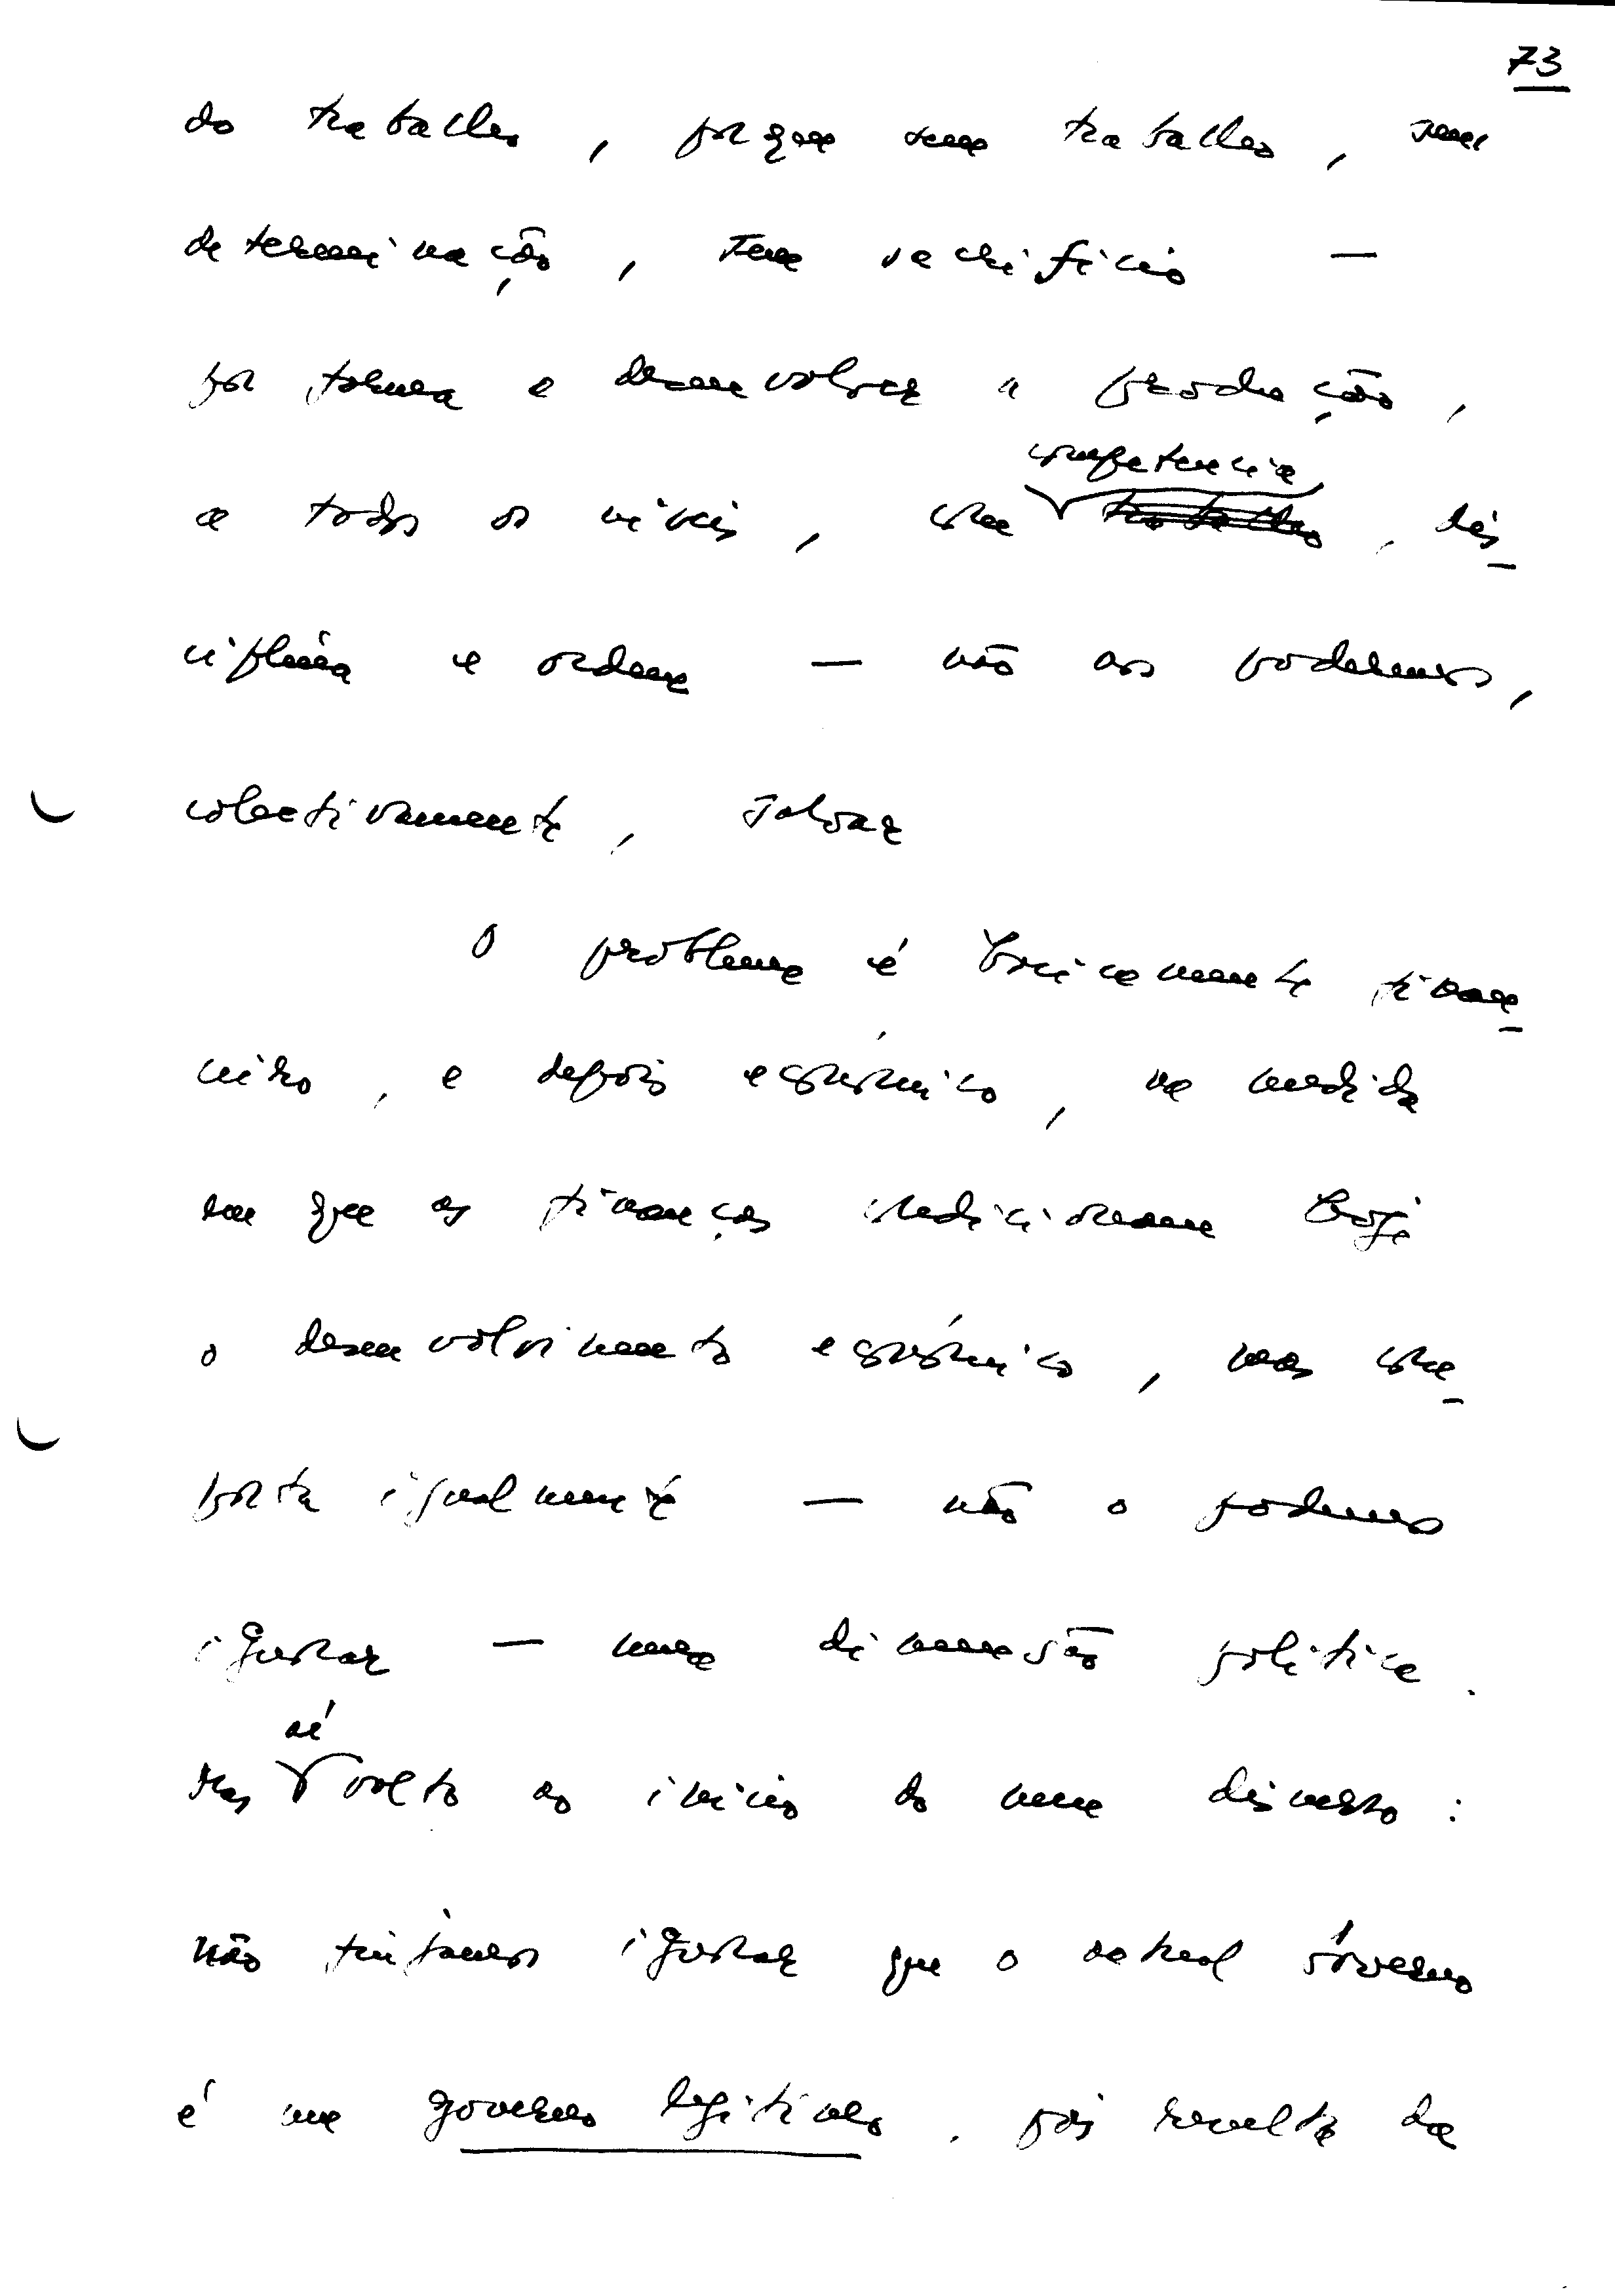 73
do trabalho, porque sem trabalho, sem
determinação, sem sacrifício —
por forma a desenvolver a produção,
competência
a todos os níveis, com trabalho, dis-
ciplina e ordem — não nos poderemos,
colectivamente, salvar
O problema é basicamente finan-
ceiro, e depois económico, na medida
em que as finanças condicionam hoje
o desenvolvimento económico, mas com-
porta igualmente — não o podemos
ignorar — uma dimensão política.
aí
Mas volto ao início do meu discurso:
não finjamos ignorar que o actual Governo
é um governo legítimo, pois resulta da